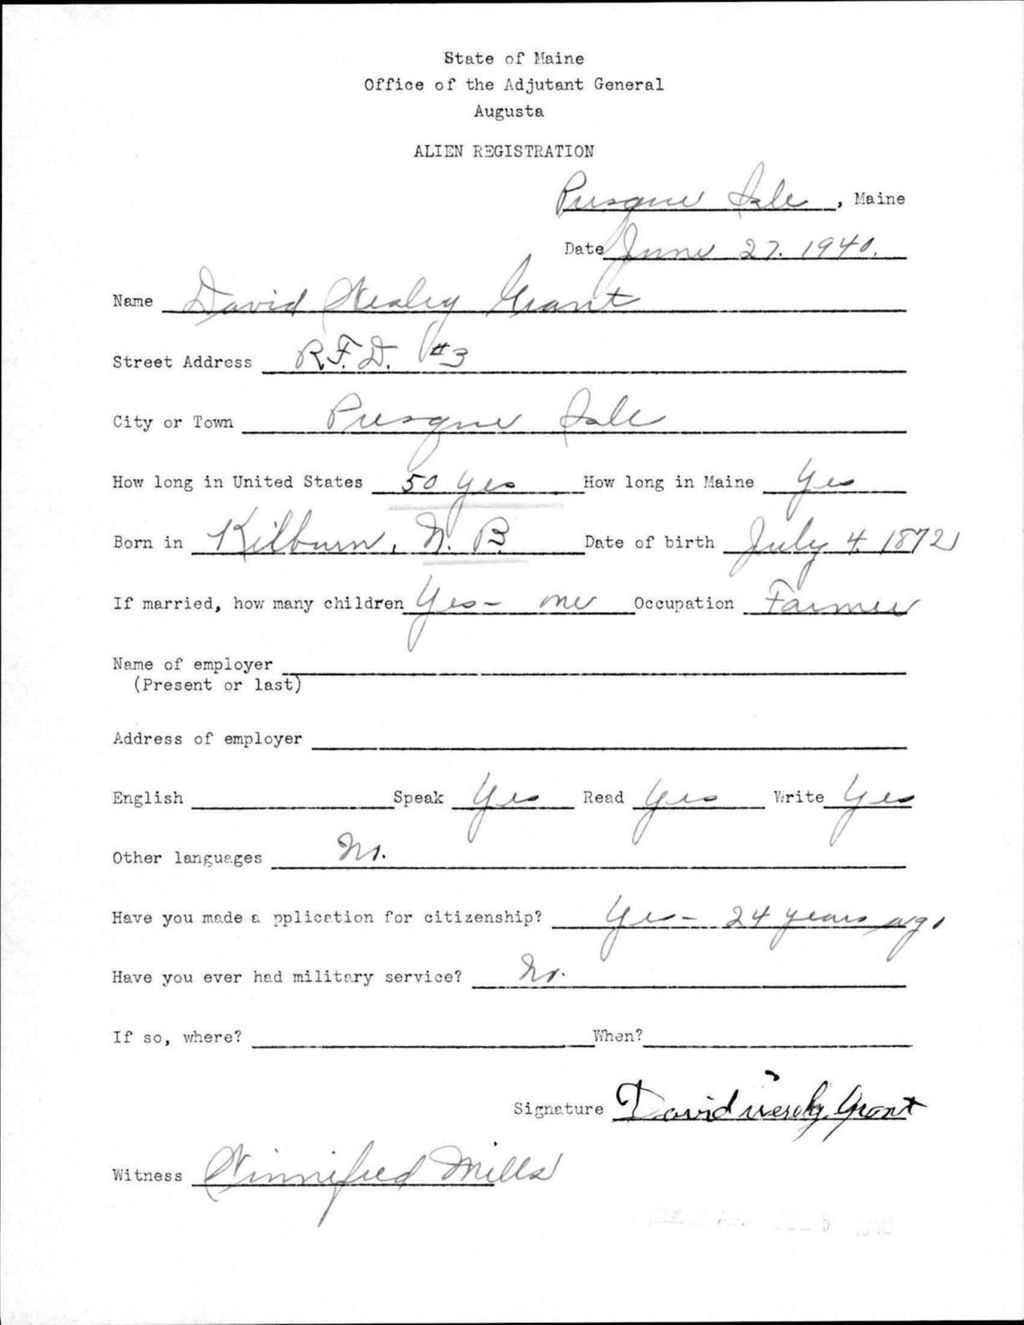 State of Maine
Office of the Adjutant General
Augusta
ALIEN REGISTRATION
Presque Isle, Maine
Date June 27. 1940.
Name David Wesley Grant
Street Address R.F.D. #3
City or Town Presque Isle
How long in United States 50 yes How long in Maine Yes
Born in Kilburn, N. B. Date of birth July 4. 1872
If married, how many children Yes - one Occupation Farmer
Name of employer
(Present or last)
Address of employer
English Speak Yes Read Yes Write Yes
Other languages No.
Have you made a pplication for citizenship? Yes - 24 years ago
Have you ever had military service? No.
If so, where? When?
Signature David Wesely Grant
Witness Winnifred Mills